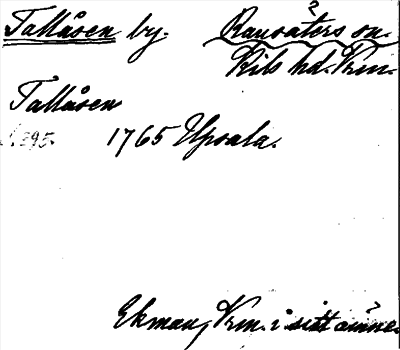 Tallåsen by. Ransäters sn.
Kils hd. Vrm.
Tallåsen
s. 295. 1765 Upsala.
Ekman, Vrm. i sitt ämne